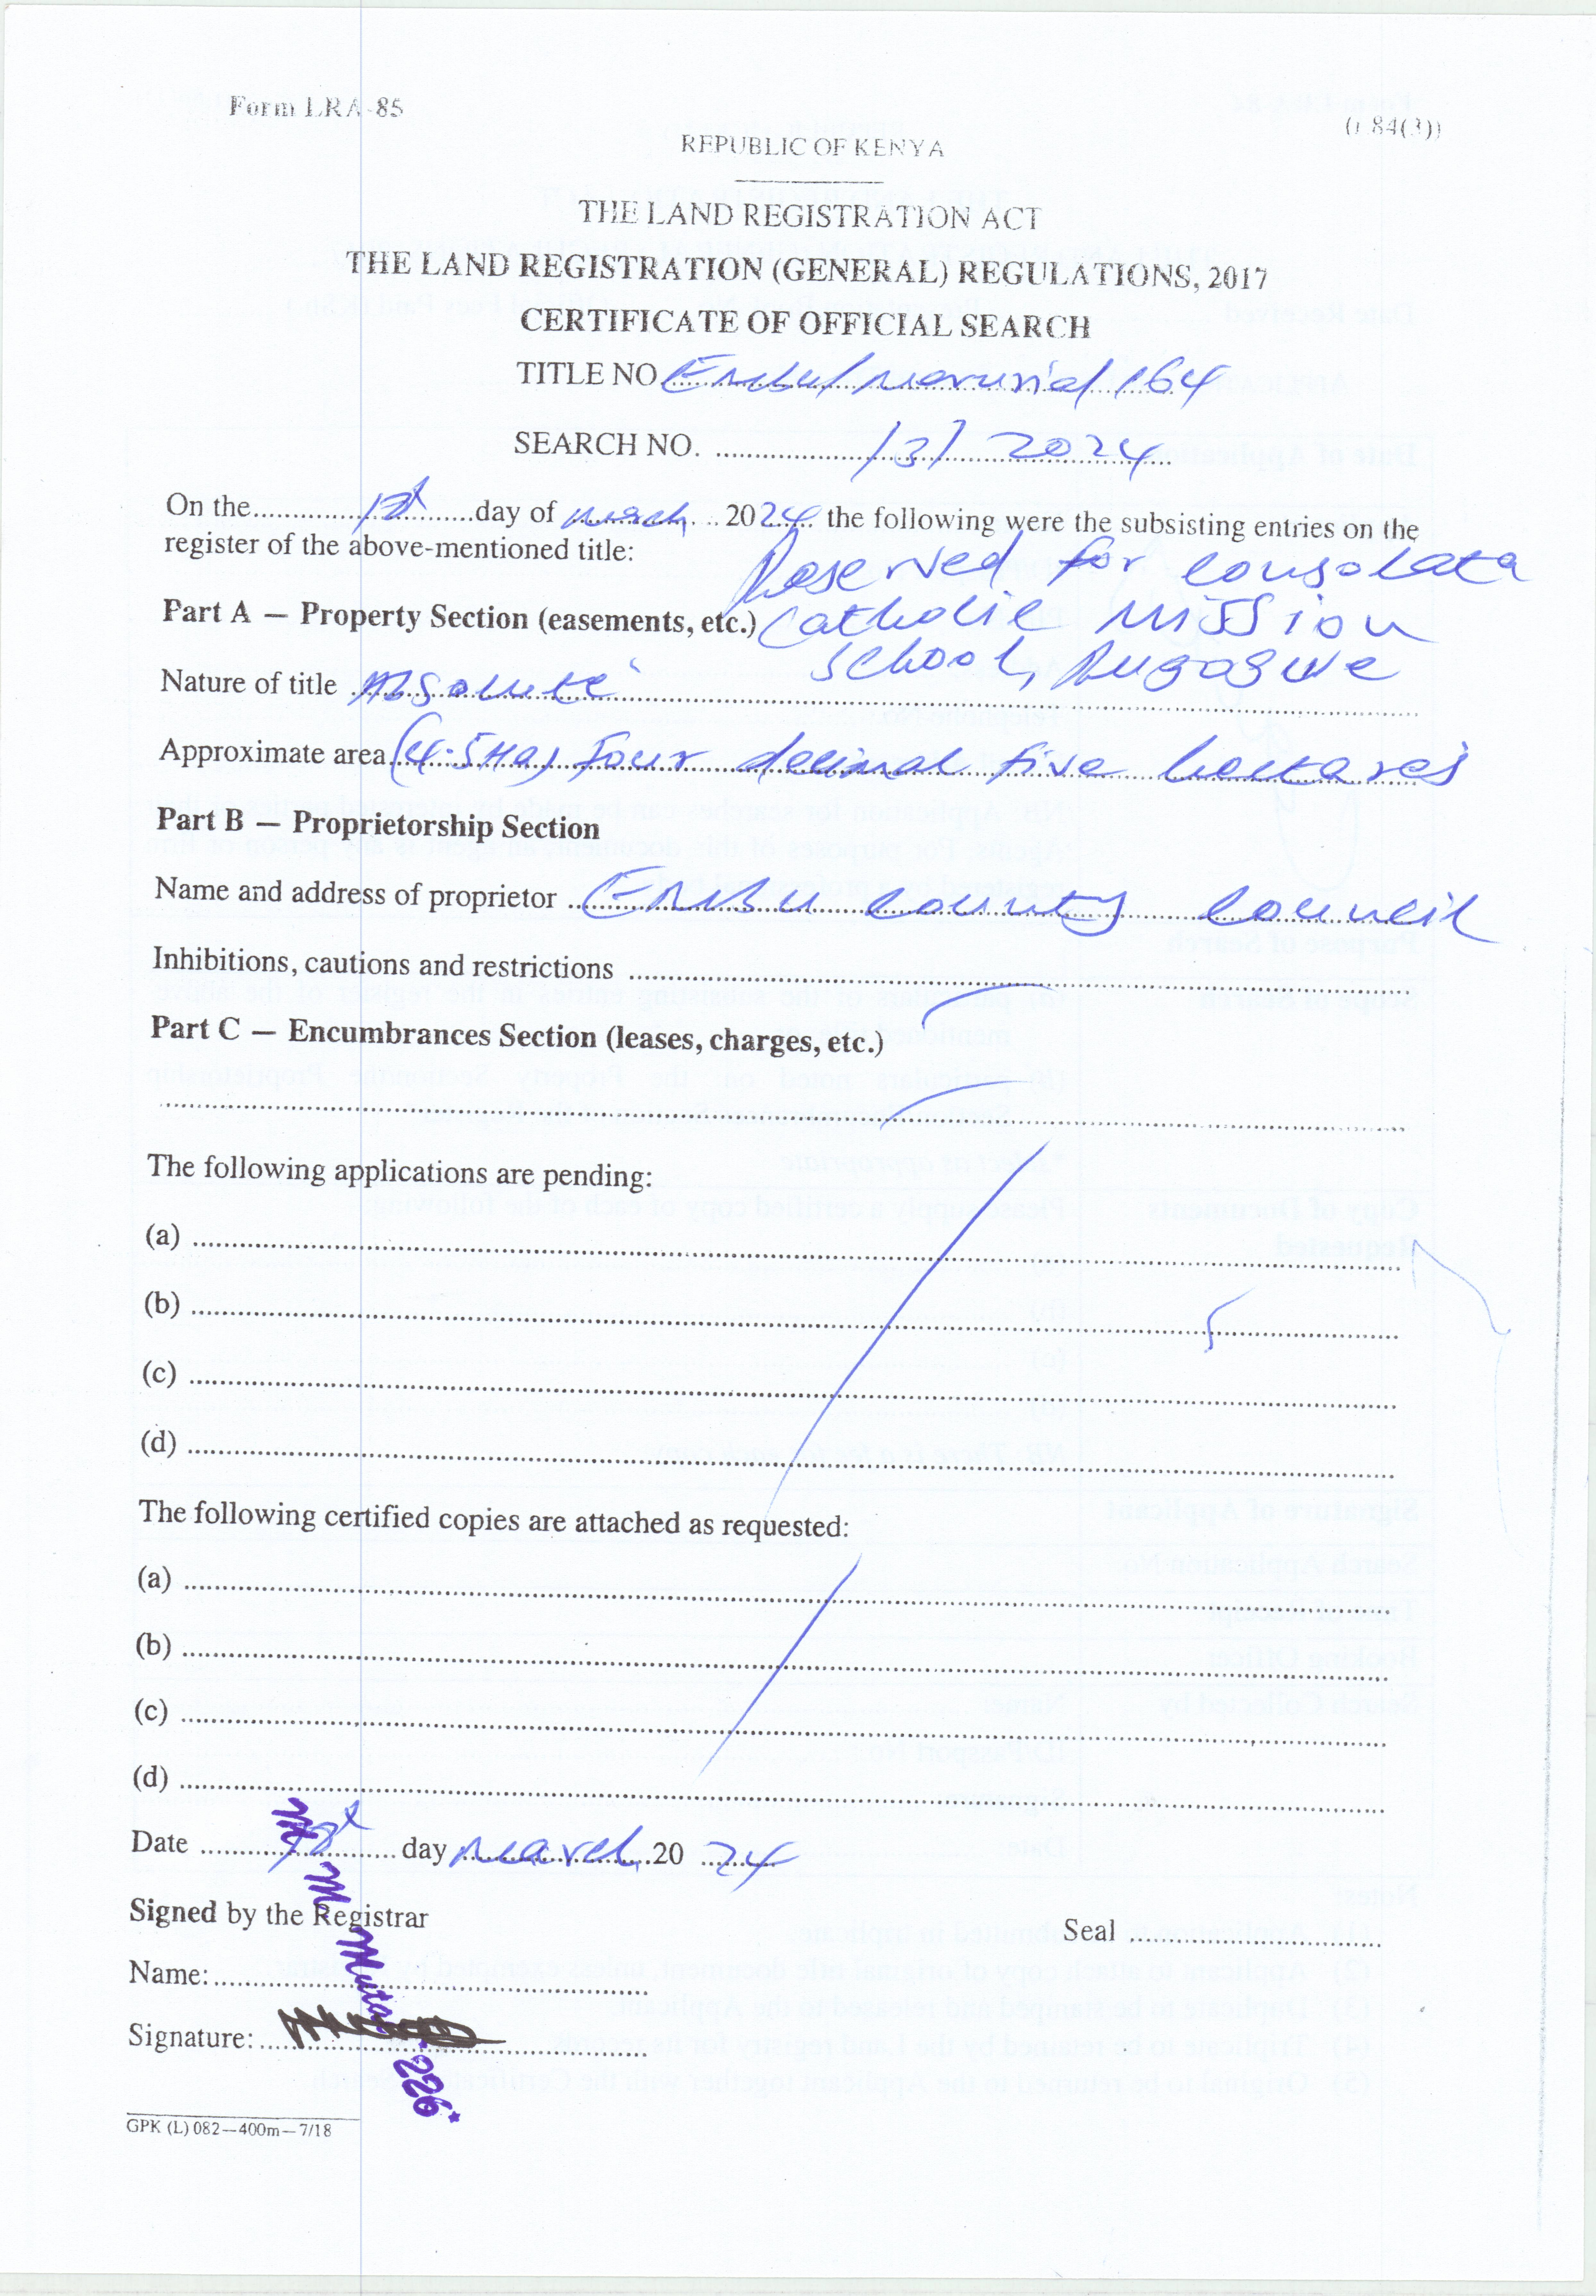 Form LRA-85
(r 84(3))
REPUBLIC OF KENYA
THE LAND REGISTRATION ACT
THE LAND REGISTRATION (GENERAL) REGULATIONS, 2017
CERTIFICATE OF OFFICIAL SEARCH
TITLE NO. Embu/ /164
SEARCH NO. /3/ 2024
On the 1st day of march 2024 the following were the subsisting entries on the
register of the above-mentioned title:
Reserved for consolata
Part A — Property Section (easements, etc.) Catholic Mission
School,
Nature of title Absolute
Approximate area (4.5Ha) Four decimal five hectares
Part B — Proprietorship Section
Name and address of proprietor Embu county council
Inhibitions, cautions and restrictions
Part C — Encumbrances Section (leases, charges, etc.)
The following applications are pending:
(a)
(b)
(c)
(d)
The following certified copies are attached as requested:
(a)
(b)
(c)
(d)
Date day march 20 24
Signed by the Registrar
Seal
Name:
Signature:
*226*
GPK (L) 082—400m—7/18